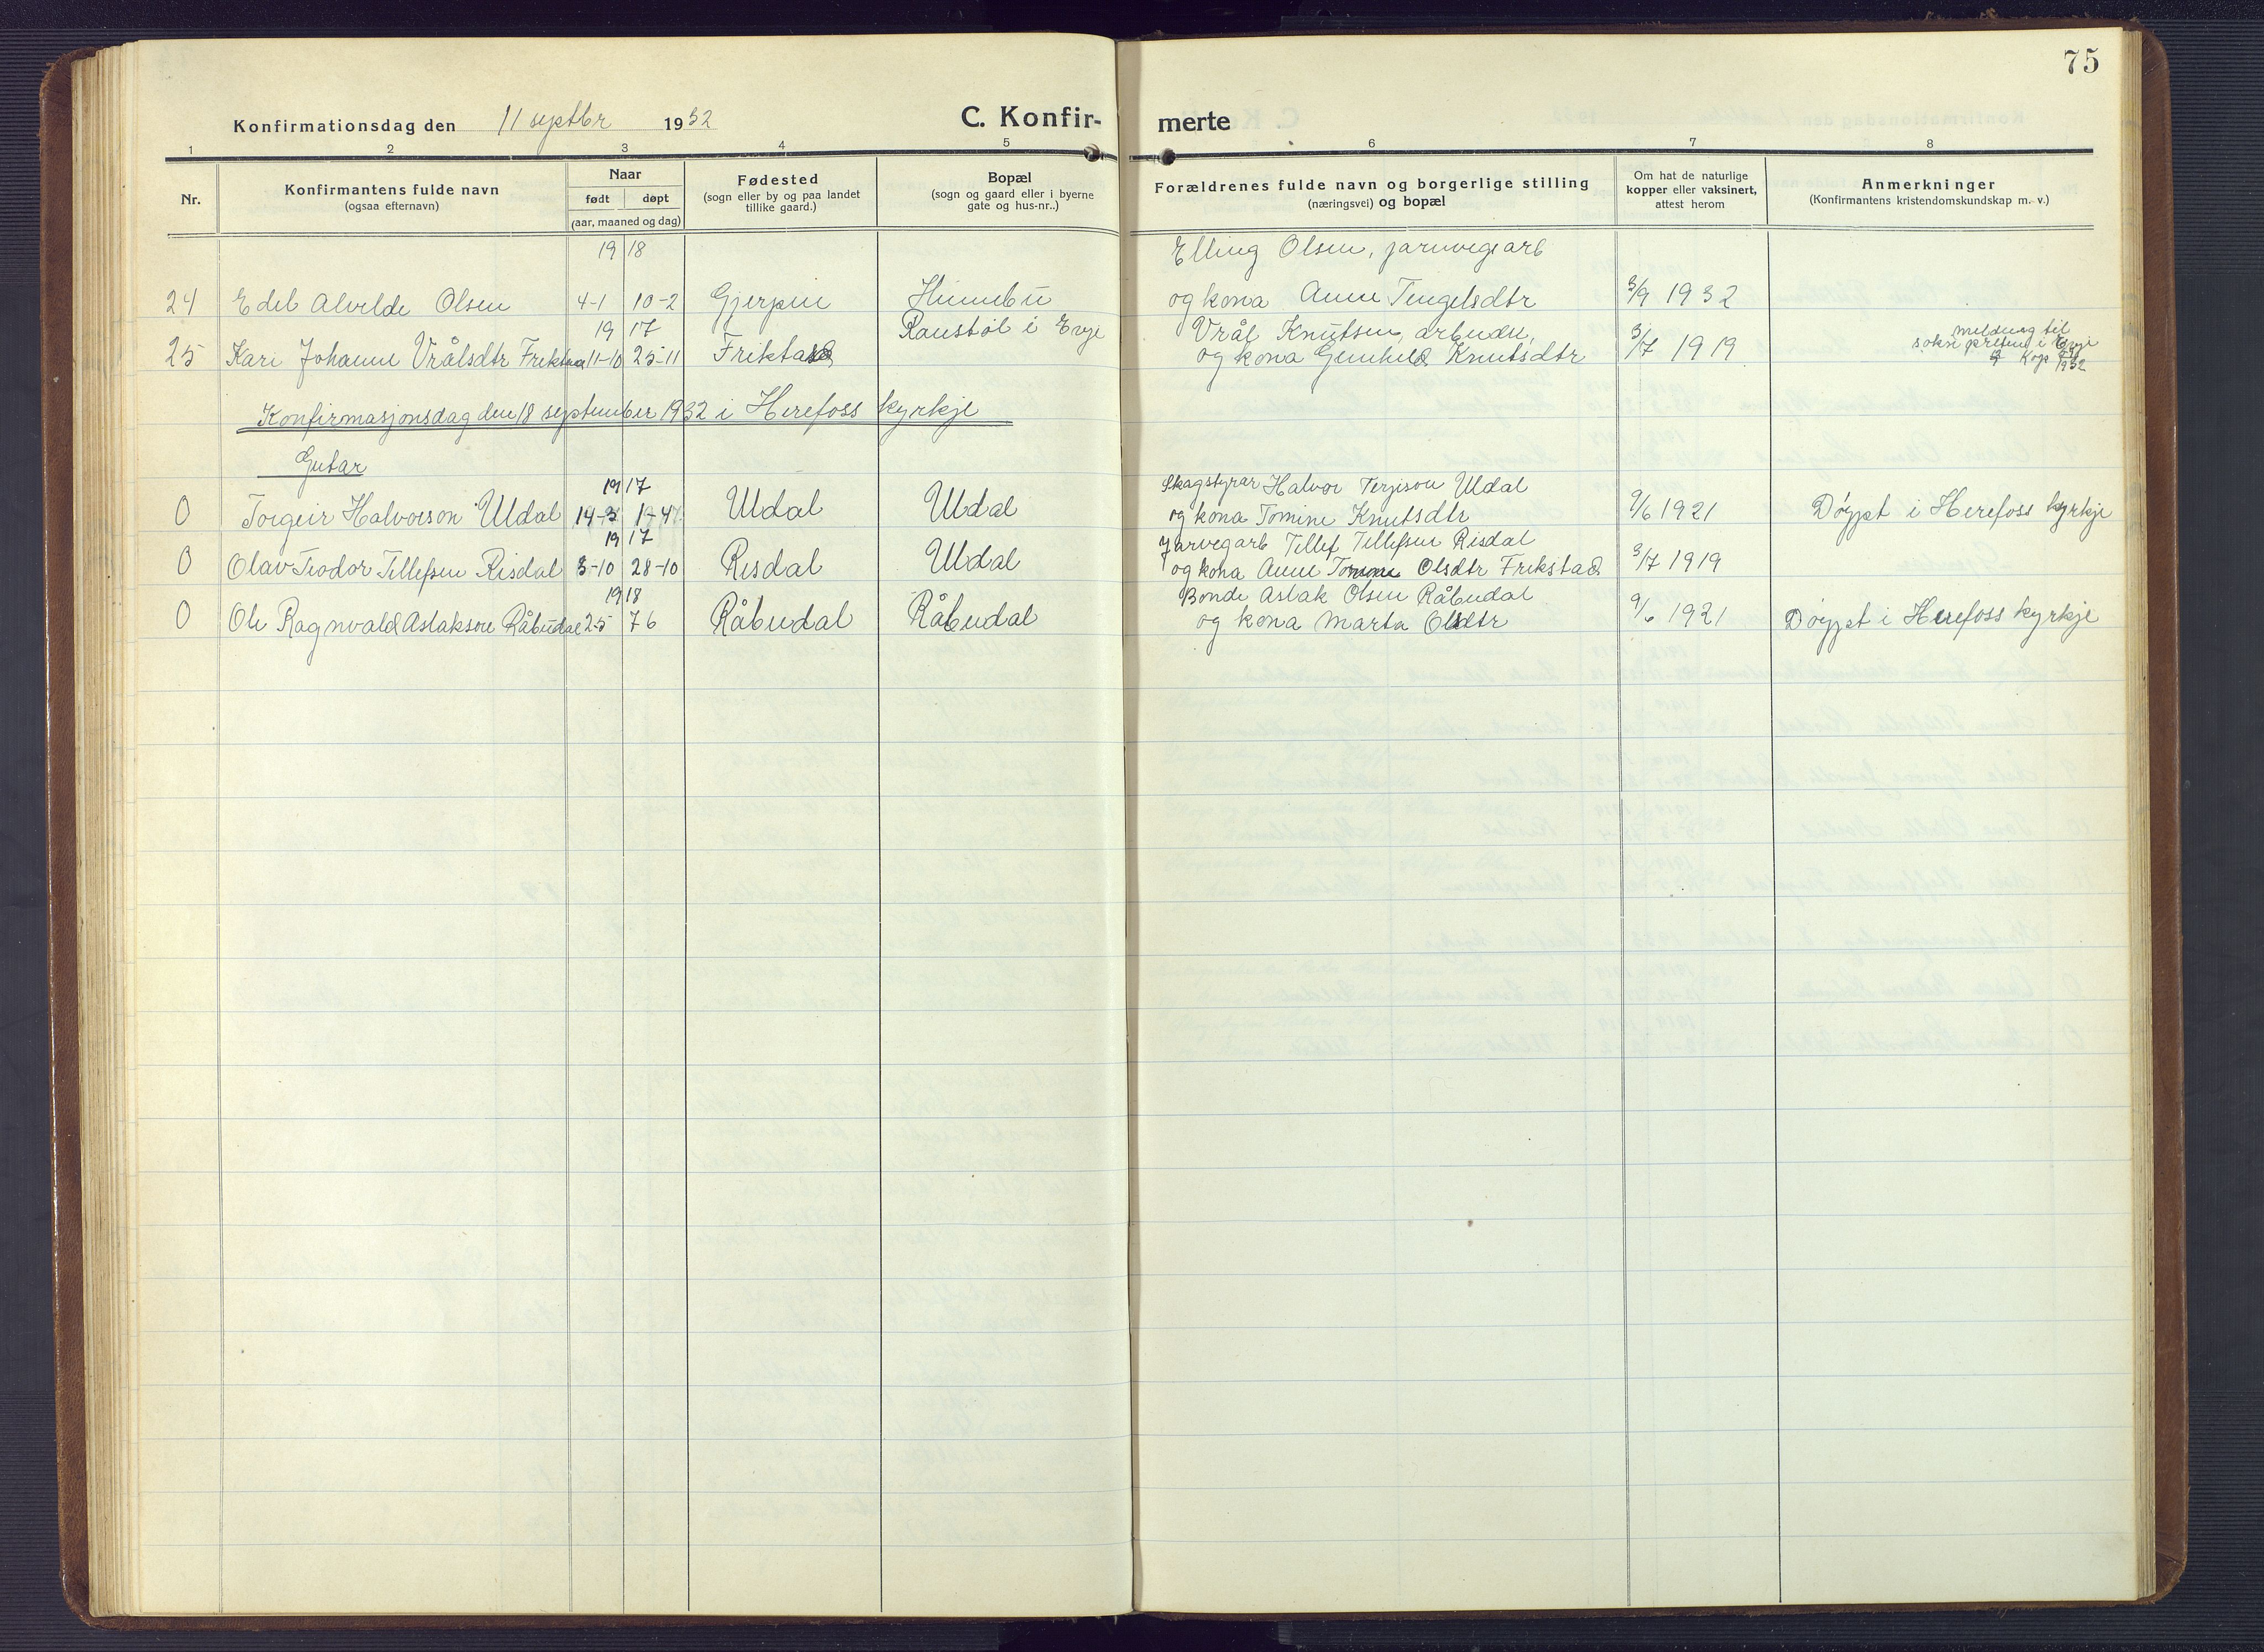 75
Konfirmationsdag den 11 septbr 1932
C. Konfir-
merte
1 2 3 4 5 6 7 8
Nr.
Konfirmantens fulde navn
(ogsaa efternavn)
Naar
født døpt
(aar, maaned og dag)
Fødested
(sogn eller by og paa landet
tillike gaard.)
Bopæl
(sogn og gaard eller i byerne
gate og hus-nr..)
Forældrenes fulde navn og borgerlige stilling
(næringsvei) og bopæl
Om hat de naturlige
kopper eller vaksinert,
attest herom
Anmerkninger
(Konfirmantens kristendomskundskap m. v.)
19 18 Elling Olsen, jarnvegsarb
24 Edel Alvilde Olsen 4-1 10-2 Gjerpen og kona Anne Tengelsdtr 3/9 1932
19 17 Raustøl i Evje Vrål Knutsen, arbeidar, meldung til
25 Kari Johanne Vrålsdtr Frikstad 11-10 25-11 Frikstad og kona Gunhild Knutsdtr 3/7 1919 soknepresten i Evje
1932
Konfirmasjonsdag den 18 september 1932 i Herefoss kyrkje
Gutar
19 17 Skogstyrar Halvor Terjison Uldal
0 Torgeir Halvorson Uldal 14-3 1-4 Uldal Uldal og kona Tomine Knutsdtr 9/6 1921 Døypt i Herefoss kyrkje
19 17 Jarvegarb Tellef Tellefsen Risdal
0 Olav Teodor Tellefsen Risdal 3-10 28-10 Risdal Uldal og kona Anne Tomine Olsdtr Frikstad 3/7 1919
19 18 Bonde Aslak Olsen Råbudal
0 Ole Ragnvald Aslakson Råbudal 2-5 7 6 Råbudal Råbudal og kona Marta Olsdtr 9/6 1921 Døypt i Herefoss kyrkje